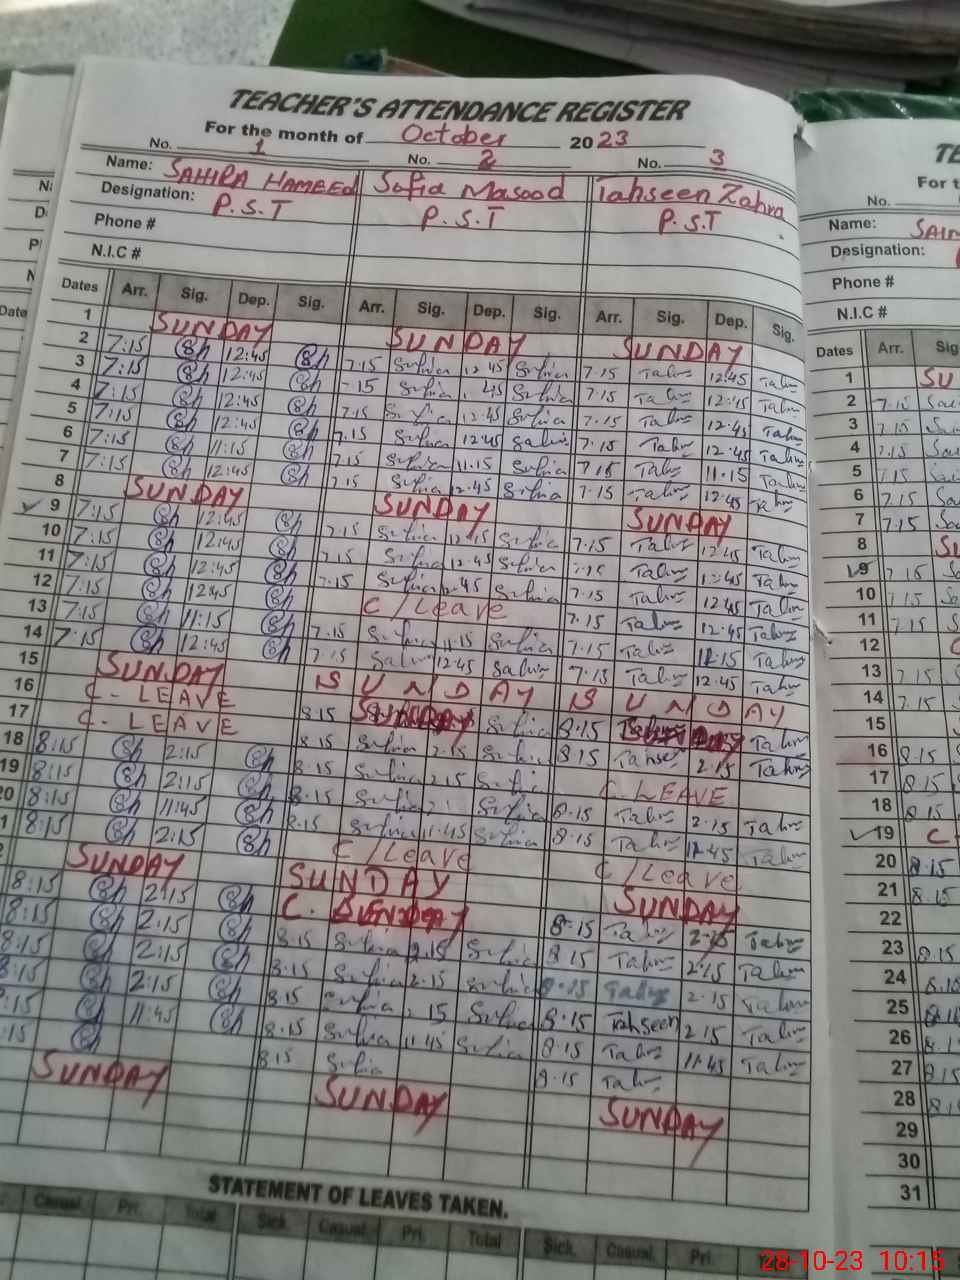 TEACHER'S ATTENDANCE REGISTER
For the month of October 2023
No. 1 No. 2 No. 3
Name: SAHIRA HAMEED Sofia Masood Tahseen Zahra
Designation: P.S.T P.S.T P.S.T
Phone #
N.I.C #
Dates Arr. Sig. Dep. Sig. Arr. Sig. Dep. Sig. Arr. Sig. Dep. Sig.
1 SUNDAY SUNDAY SUNDAY
2 7:15 Sh 12:45 Sh 7.15 Sufia 12.45 Sufia 7.15 Tahs 12:45 Tahs
3 7:15 Sh 12:45 Sh 15 Sufia 45 Sufia 7.15 Tahs 12:45 Tahs
4 7:15 Sh 12:45 Sh 7.15 Sufia 12.45 Sufia 7.15 Tahs 12.45 Tahs
5 7:15 Sh 12:45 Sh 7.15 Sufia 12.45 7.15 Tahs 12.45 Tahs
6 7:15 Sh 11:15 Sh 7.15 Sufia 11.15 Sufia 7.15 Tahs 11.15 Tahs
7 7:15 Sh 12:45 Sh 7.15 Sufia 12.45 Sufia 7.15 Tahs 12.45 Tahs
8 SUNDAY SUNDAY SUNDAY
9 7:15 Sh 12:45 Sh 7.15 Sufia 12.45 Sufia 7.15 Tahs 12.45 Tahs
10 7:15 Sh 12:45 Sh 7.15 Sufia 12.45 Sufia Tahs 12.45 Tahs
11 7:15 Sh 12:45 Sh 7.15 Sufia 12.45 Sufia 7.15 Tahs 12.45 Tahs
12 7:15 Sh 12:45 Sh C/Leave 7.15 Tahs 12.45 Tahs
13 7:15 Sh 11:15 Sh 7.15 Sufia 11.15 Sufia 7.15 Tahs 11.15 Tahs
14 7:15 Sh 12:45 Sh 7.15 12.45 7.15 Tahs 12.45 Tahs
15 SUNDAY SUNDAY SUNDAY
16 C-LEAVE 8.15 Sufia 8.15 Tahs
17 C-LEAVE 8.15 Sufia 2.15 Sufia 8.15 Tahse 2.15 Tahs
18 8:15 Sh 2:15 Sh 8.15 Sufia 2.15 Sufia C.LEAVE
19 8:15 Sh 2:15 Sh 8.15 Sufia Sufia 8.15 Tahs 2.15 Tahs
20 8:15 Sh 11:45 Sh 8.15 Sufia 11.45 Sufia 8.15 Tahs 11.45 Tahs
1 8:15 Sh 2:15 Sh C/Leave C/Leave
SUNDAY SUNDAY SUNDAY
8:15 Sh 2:15 Sh C. 8.15 Tahs 2.15 Tahs
8:15 Sh 2:15 Sh 8.15 Sufia 2.15 Sufia 8.15 Tahs 2.15 Tahs
8:15 Sh 2:15 Sh 8.15 Sufia 2.15 Sufia 8.15 Tahs 2.15 Tahs
8:15 Sh 2:15 Sh 8.15 Sufia 15 Sufia 8.15 Tahseen 2.15 Tahs
:15 Sh 11:45 Sh 8.15 Sufia 11.45 Sufia 8.15 Tahs 11.45 Tahs
:15 Sh 8.15 Sufia 8.15 Tahs
SUNDAY SUNDAY SUNDAY
STATEMENT OF LEAVES TAKEN.
Casual Pri. Total Sick. Casual. Pri. Total Sick. Casual. Pri.
TE
For t
No.
Name: SAIM
Designation:
Phone #
N.I.C #
Dates Arr. Sig
1 SU
2 7.15
3 7.15
4 7.15
5 7.15
6 7.15
7 7.15
8 SU
9 7.15
10 7.15
11 7.15
12 C
13 7.15
14 7.15
15
16 8.15
17 8.15
18 8.15
19 C
20 8.15
21 8.15
22
23 8.15
24 8.15
25 8.15
26 8.1
27 8.15
28 8.1
29
30
31
28-10-23 10:15